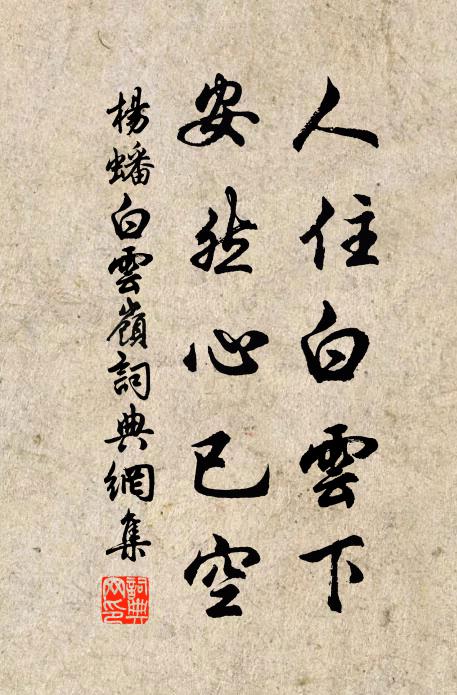 人住白雲下
安然心已空
楊蟠白雲嶺詞典網集
詞典
网印